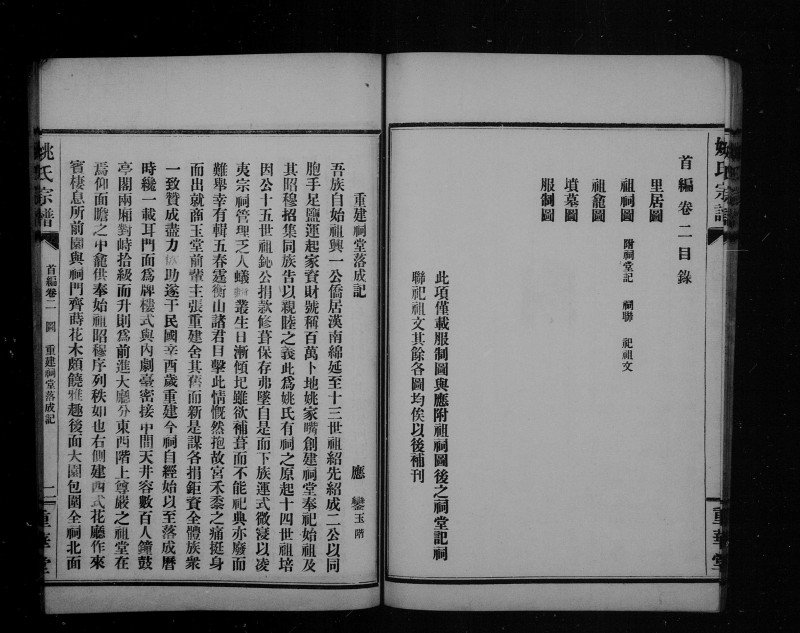 姚氏宗譜
首編卷二目錄
里居圖
祖祠圖 附祠堂記 祠聯 祀祖文
祖龕圖
墳墓圖
服制圖
此項僅載服制圖與應附祖祠圖後之祠堂記祠
聯祀祖文其餘各圖均俟以後補刊
重華堂
重建祠堂落成記
應鑾玉階
吾族自始祖興一公僑居漢南綿延至十三世祖紹先紹成二公以同
胞手足鹽運起家資財號稱百萬卜地姚家嘴創建祠堂奉祀始祖及
其昭穆招集同族告以親睦之義此爲姚氏有祠之原起十四世祖培
因公十五世祖鈊公捐款修葺保存弗墜自是而下族運式微寖以凌
夷宗祠管理乏人蟻叢生日漸傾圮雖欲補葺而不能祀典亦廢而
難舉幸有輯五春霆衡山諸君目擊此情慨然抱故宮禾黍之痛挺身
而出就商玉堂前輩主張重建舍其舊而新是謀各捐鉅資全體族衆
一致贊成盡力助遂于民國辛酉歲重建今祠自經始以至落成曆
時纔一載耳門面爲牌樓式與內劇臺密接中間天井容數百人鐘鼓
亭閣兩廂對峙拾級而升則爲前進大廳分東西階上尊嚴之祖堂在
焉仰面瞻之中龕供奉始祖昭穆序列秩如也右側建西式花廳作來
賓棲息所前園與祠門齊蒔花木頗饒雅趣後面大園包圍全祠北面
姚氏宗譜
首編卷二 圖 重建祠堂落成記
二
重華堂